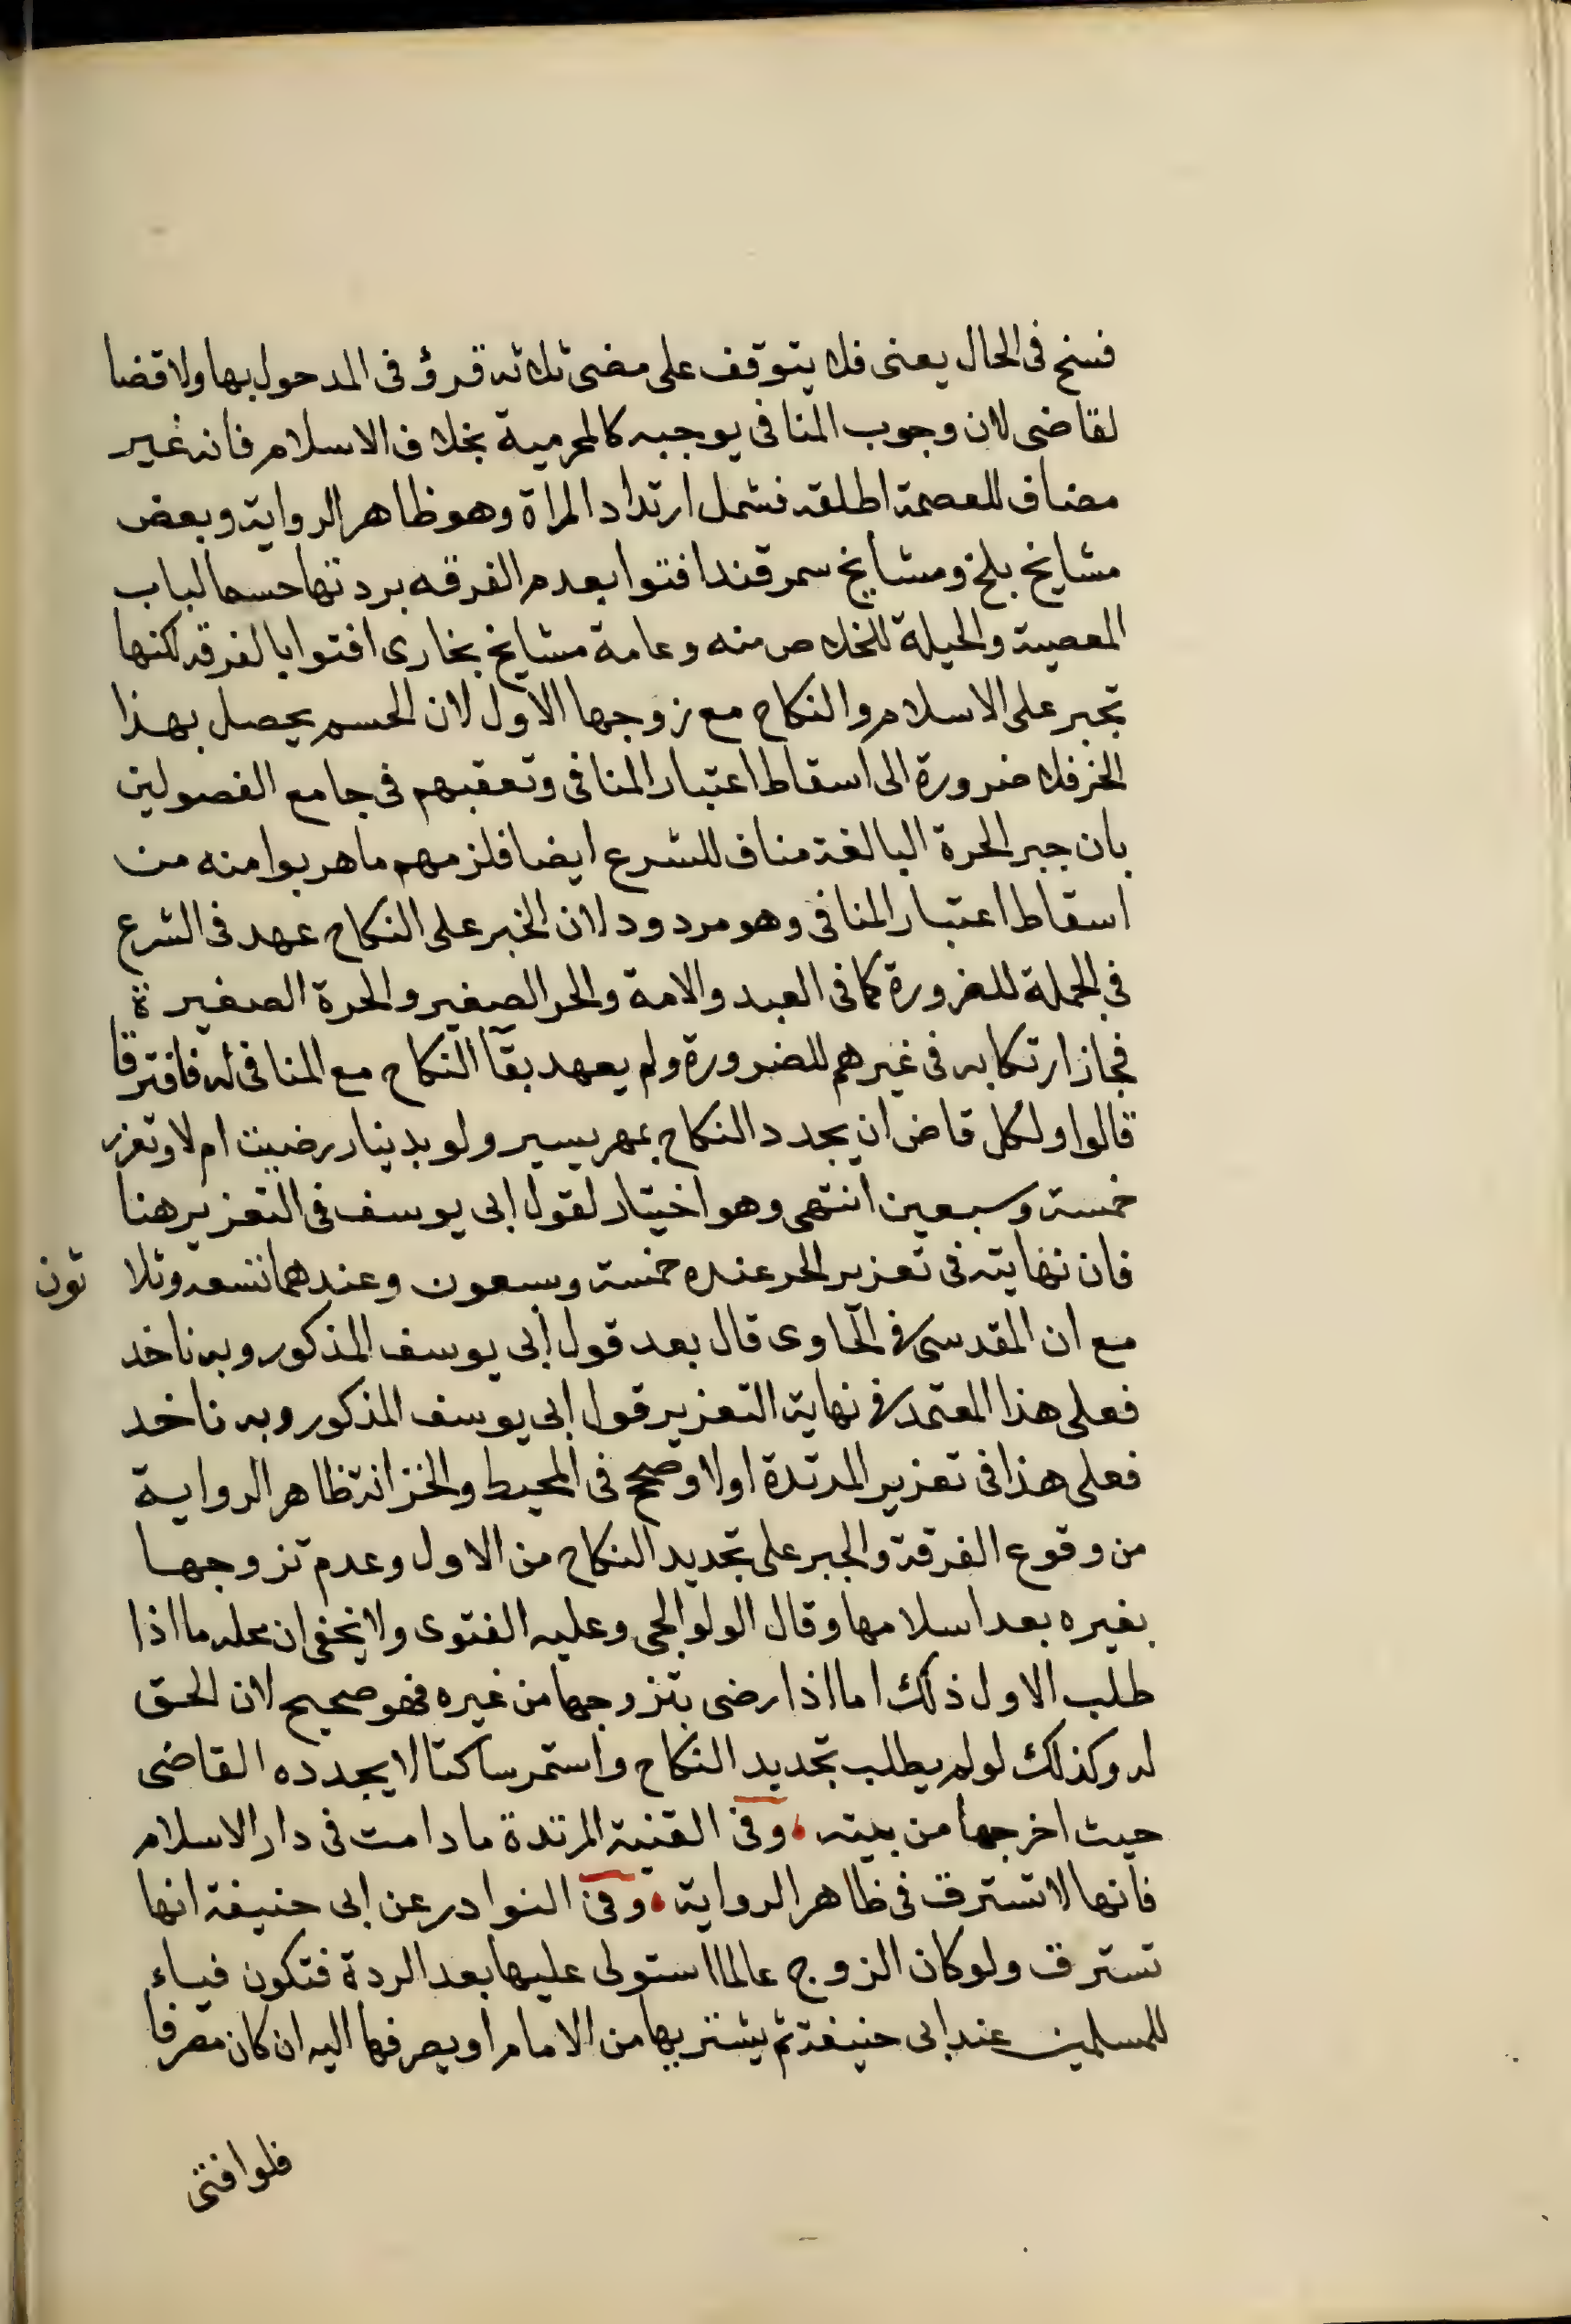 فسخ فى الحال يعنى فلا يتوقف على مضى ثلاثه قرؤ فى المدحول بها ولا قضا
لقاضى لان وجوب المنافى يوجبه كالمحرمية بخلاف الاسلام فانه غير
مضاف للعصمة اطلقه فشمل ارتداد المراة وهو ظاهر الرواية وبعض
مشايخ بلخ ومشايخ سمرقند افتوا بعدم الفرقه بردتها حسما لباب
المعصية والحيلة للخلاص منه وعامة مشايخ بخارى افتوا بالفرقه لكنها
تجبر على الاسلام والنكاح مع زوجها الاول لان الحسم يحصل بهذا
الخبر فلا ضرورة الى اسقاط اعتبار المنافى وتعقبهم فى جامع الفصولين
بان جبر الحرة البالغة مناف للشرع ايضا فلزمهم ما هربوا منه من
اسقاط اعتبار المنافى وهو مردود لان الخبر على النكاح عهد فى الشرع
فى الجملة للضرورة كما فى العبد والامة والحر الصغير والحرة الصغيرة
فجاز ارتكابه فى غيرهم للضرورة ولم يعهد بقآ النكاح مع المنافى له فافترقا
قالوا ولكل قاض ان يجدد النكاح بمهر يسير ولو بدينار رضيت ام لا وتعزر
خمسة وسبعين انتهى وهو اختيار لقول ابى يوسف فى التعزير هنا
فان نهايته فى تعزير الحر عنده خمسة وسبعون وعندهما تسعه وثلا ثون
مع ان المقدسى فى الحاوى قال بعد قول ابى يوسف المذكور وبه ناخد
فعلى هذا المعتمد فى نهاية التعزير قول ابى يوسف المذكور وبه ناخد
فعلى هذا فى تعزير المرتدة اولا وصحح فى المحيط والخزانة ظاهر الرواية
من وقوع الفرقة والجبر على تجديد النكاح من الاول وعدم تزوجها
بغيره بعد اسلامها وقال الولوالجى وعليه الفتوى ولا يخفى ان محله ما اذا
طلب الاول ذلك اما اذا رضى بتزوجها من غيره فهو صحيح لان الحق
له وكذلك لو لم يطلب تجديد النكاح واستمر ساكتا لا يجدده القاضى
حيث اخرجها من بيته وفى القنية المرتدة ما دامت فى دار الاسلام
فانها لا تسترق فى ظاهر الرواية وفى النوادر عن ابى حنيفة انها
تسترق ولو كان الزوج عالما استولى عليها بعد الردة فتكون فياء
للمسلمين عند ابى حنيفة ثم يشتريها من الامام او يصرفها اليه ان كان مصرفا
فلو افتى